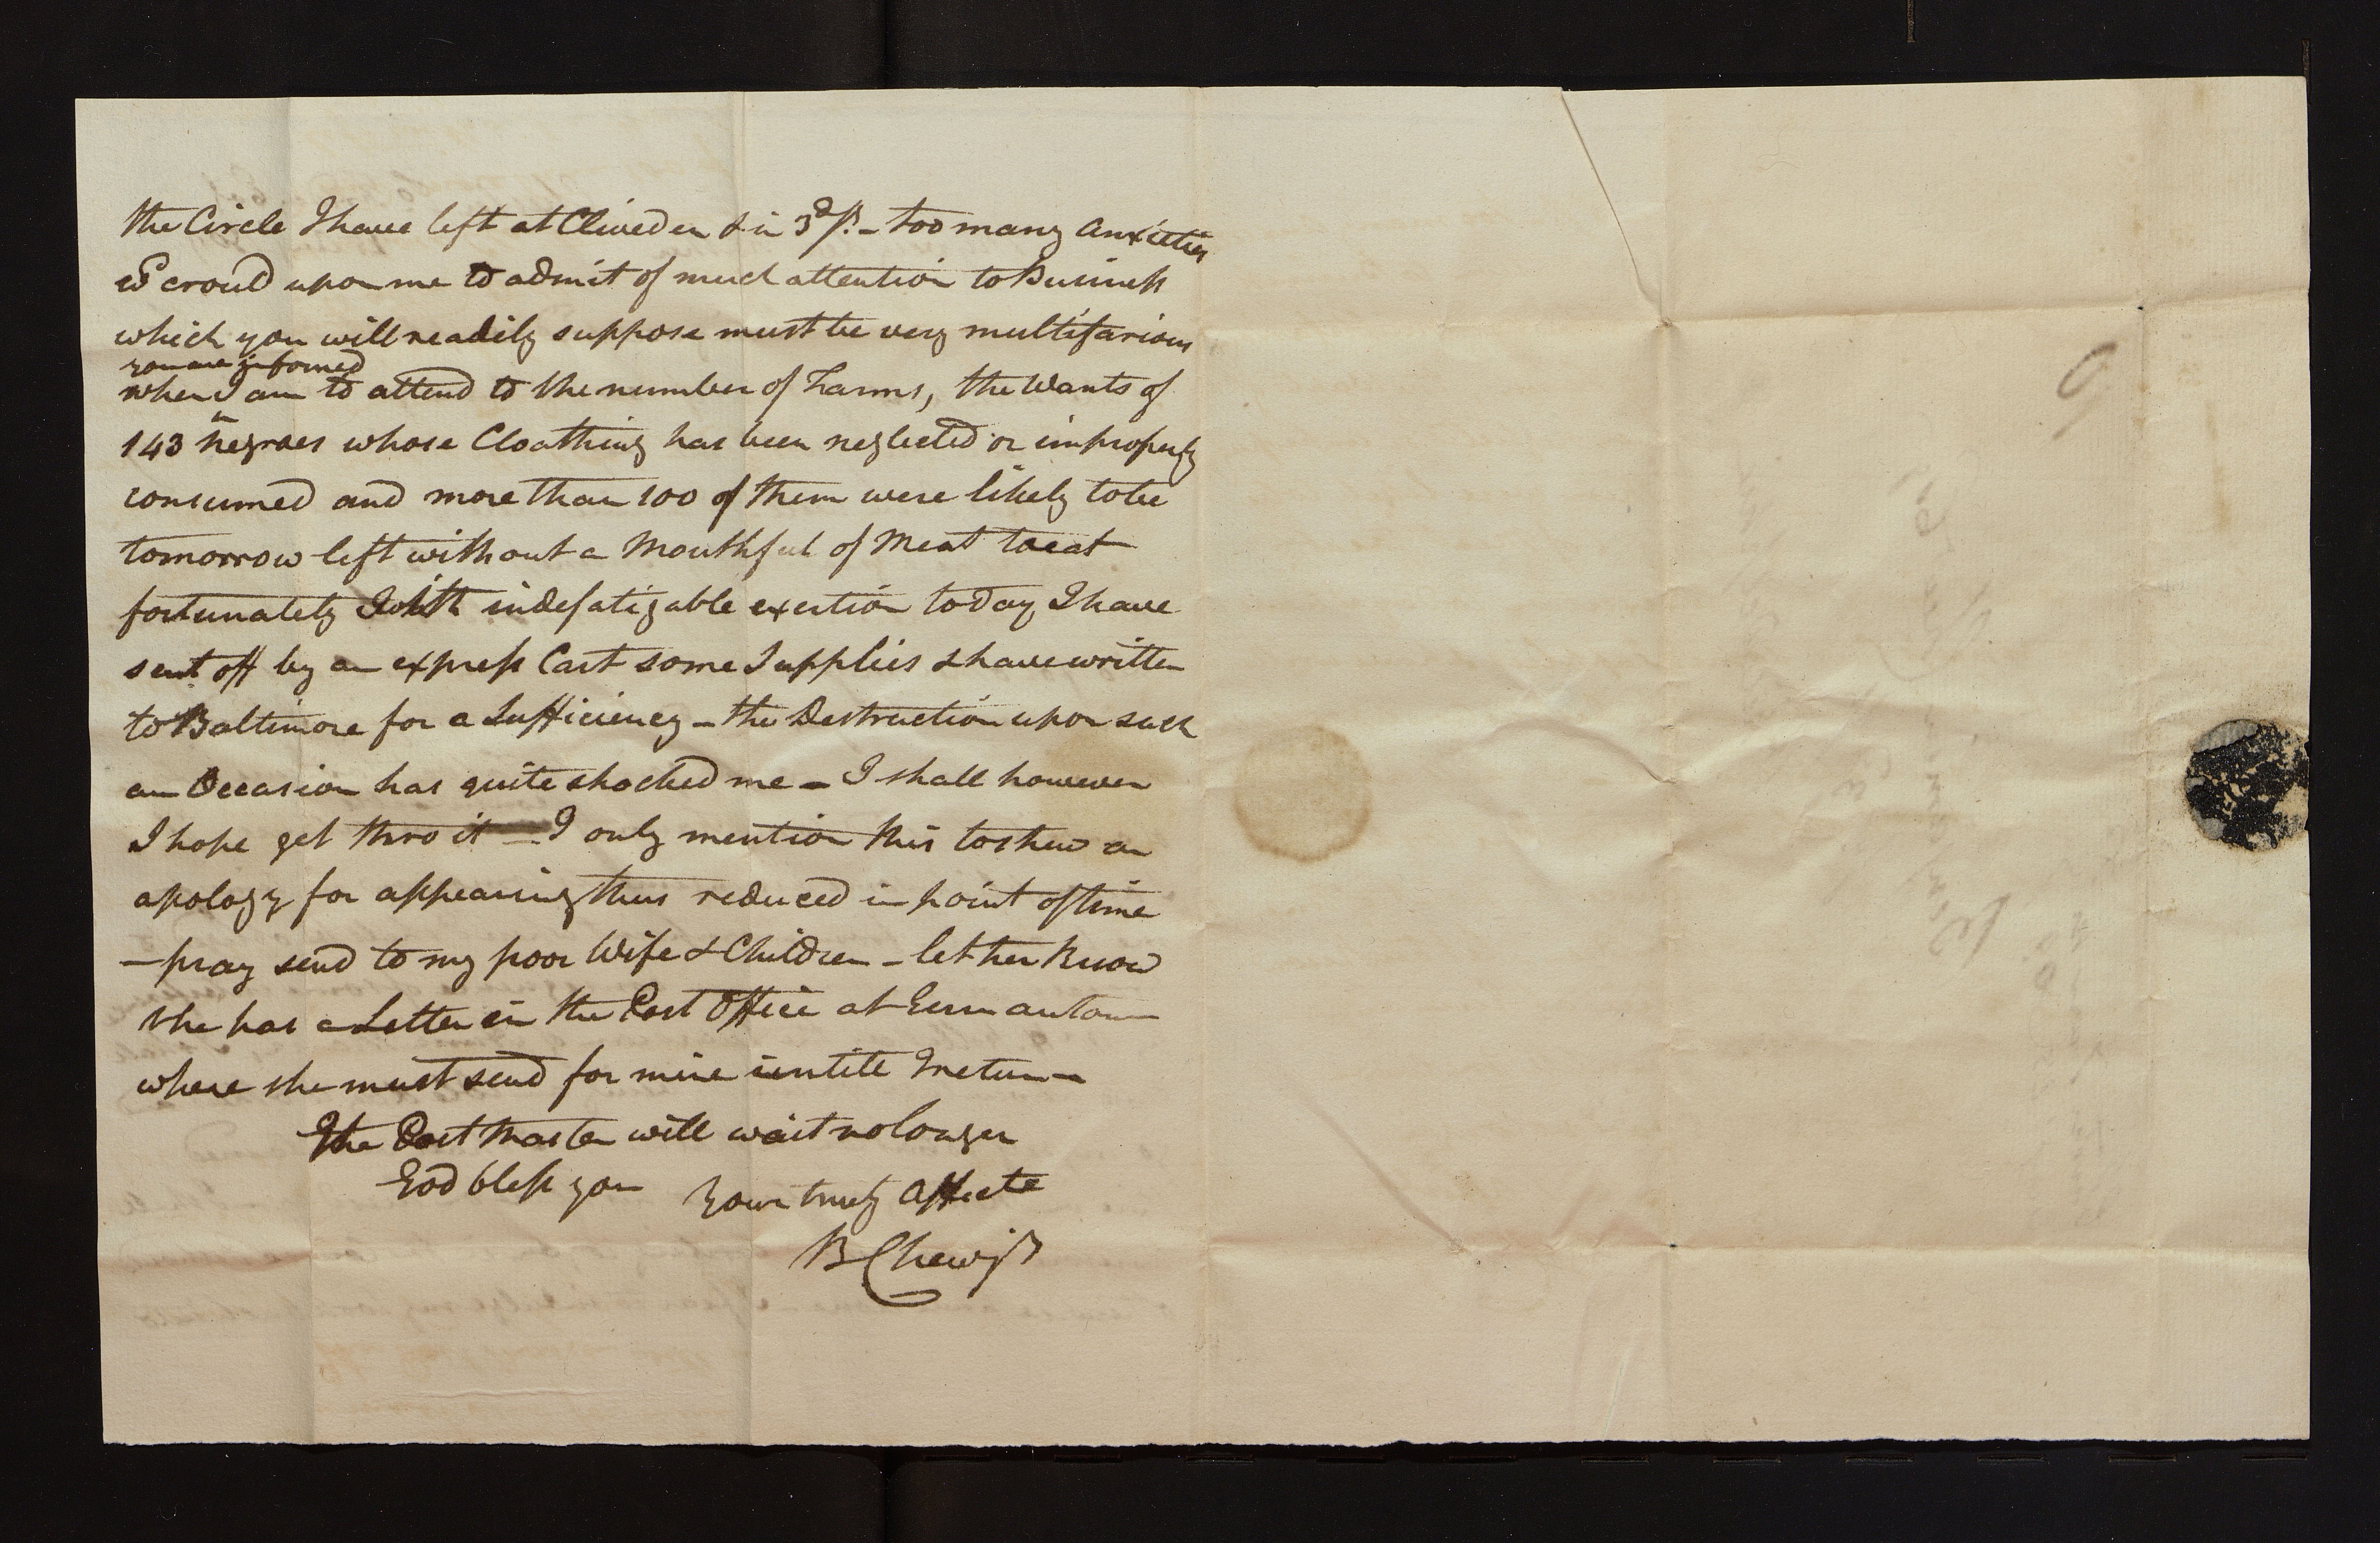 the Circle I have left at Cliveden & in 3d St. - too many Anxieties
croud upon me to admit of much attention to Business
which you will readily suppose must be very multifarious
you are informed
when I am to attend to the number of Farms, the Wants of
143 Negroes whose Cloathing has been neglected or improperly
consumed and more than 100 of them were likely to be
tomorrow left without a Mouthful of Meat to eat
fortunately with indefatigable exertion today I have
sent off by an express Cart some Supplies & have written
to Baltimore for a Sufficiency - the Destruction upon such
an Occasion has quite shocked me - I shall however
I hope get thro it - I only mention this to shew an
apology for appearing thus reduced in point of time
- pray send to my poor Wife & Children - let her know
she has a Letter in the Post Office at Germantown
where she must send for mine untile I return -
The Post Master will wait no longer
God bless you Your truly Affecte
B Chew Jr